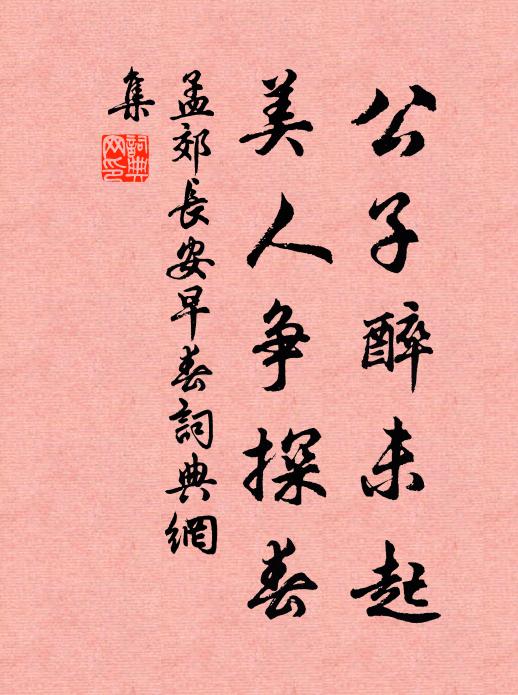 公子醉未起
美人争探春
孟郊長安早春詞典網
集
詞典網印